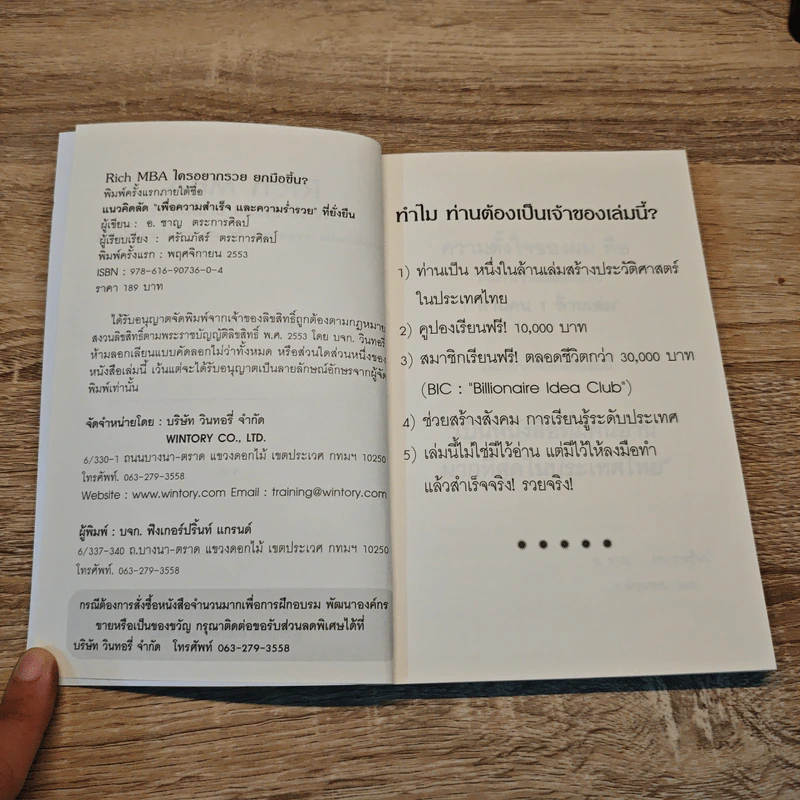 Rich MBA ใครอยากรวย ยกมือขึ้น?
พิมพ์ครั้งแรกภายใต้ชื่อ
แนวคิดลัด "เพื่อความสำเร็จ และความร่ำรวย" ที่ยั่งยืน
ผู้เขียน : อ. ชาญ ตระการศิลป์
ผู้เรียบเรียง : ศรัณภัสร์ ตระการศิลป์
พิมพ์ครั้งแรก : พฤศจิกายน 2553
ISBN : 978-616-90736-0-4
ราคา 189 บาท
ได้รับอนุญาตจัดพิมพ์จากเจ้าของลิขสิทธิ์ถูกต้องตามกฎหมาย
สงวนลิขสิทธิ์ตามพระราชบัญญัติลิขสิทธิ์ พ.ศ. 2553 โดย บจก. วินทอรี่
ห้ามลอกเลียนแบบคัดลอกไม่ว่าทั้งหมด หรือส่วนใดส่วนหนึ่งของ
หนังสือเล่มนี้ เว้นแต่จะได้รับอนุญาตเป็นลายลักษณ์อักษรจากผู้จัด
พิมพ์เท่านั้น
จัดจำหน่ายโดย : บริษัท วินทอรี่ จำกัด
WINTORY CO., LTD.
6/330-1 ถนนบางนา-ตราด แขวงดอกไม้ เขตประเวศ กทมฯ 10250
โทรศัพท์. 063-279-3558
Website : www.wintory.com Email : training@wintory.com
ผู้พิมพ์ : บจก. ฟิงเกอร์ปริ้นท์ แกรนด์
6/337-340 ถ.บางนา-ตราด แขวงดอกไม้ เขตประเวศ กทมฯ 10250
โทรศัพท์. 063-279-3558
กรณีต้องการสั่งซื้อหนังสือจำนวนมากเพื่อการฝึกอบรม พัฒนาองค์กร
ขายหรือเป็นของขวัญ กรุณาติดต่อขอรับส่วนลดพิเศษได้ที่
บริษัท วินทอรี่ จำกัด โทรศัพท์ 063-279-3558
ทำไม ท่านต้องเป็นเจ้าของเล่มนี้?
1) ท่านเป็น หนึ่งในล้านเล่มสร้างประวัติศาสตร์
ในประเทศไทย
2) คูปองเรียนฟรี! 10,000 บาท
3) สมาชิกเรียนฟรี! ตลอดชีวิตกว่า 30,000 บาท
(BIC : "Billionaire Idea Club")
4) ช่วยสร้างสังคม การเรียนรู้ระดับประเทศ
5) เล่มนี้ไม่ใช่มีไว้อ่าน แต่มีไว้ให้ลงมือทำ
แล้วสำเร็จจริง! รวยจริง!